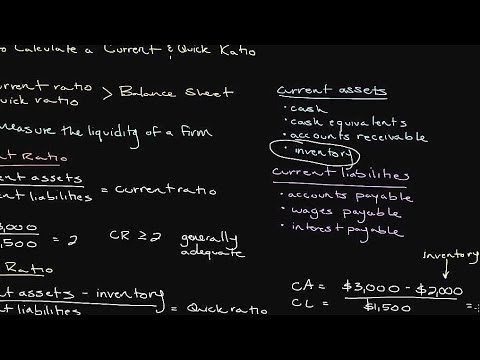 to Calculate a Current & Quick Ratio
urrent ratio
uick ratio > Balance Sheet
measure the liquidity of a firm
nt Ratio
ent assets
ent liabilities = current ratio
3,000
1,500 = 2 CR ≥ 2 generally adequate
Ratio
nt assets - inventory
nt liabilities = Quick ratio
current assets
· cash
· cash equivalents
· accounts receivable
· inventory
current liabilities
· accounts payable
· wages payable
· interest payable
inventory
CA = $3,000 - $2,000
CL = $1,500 =